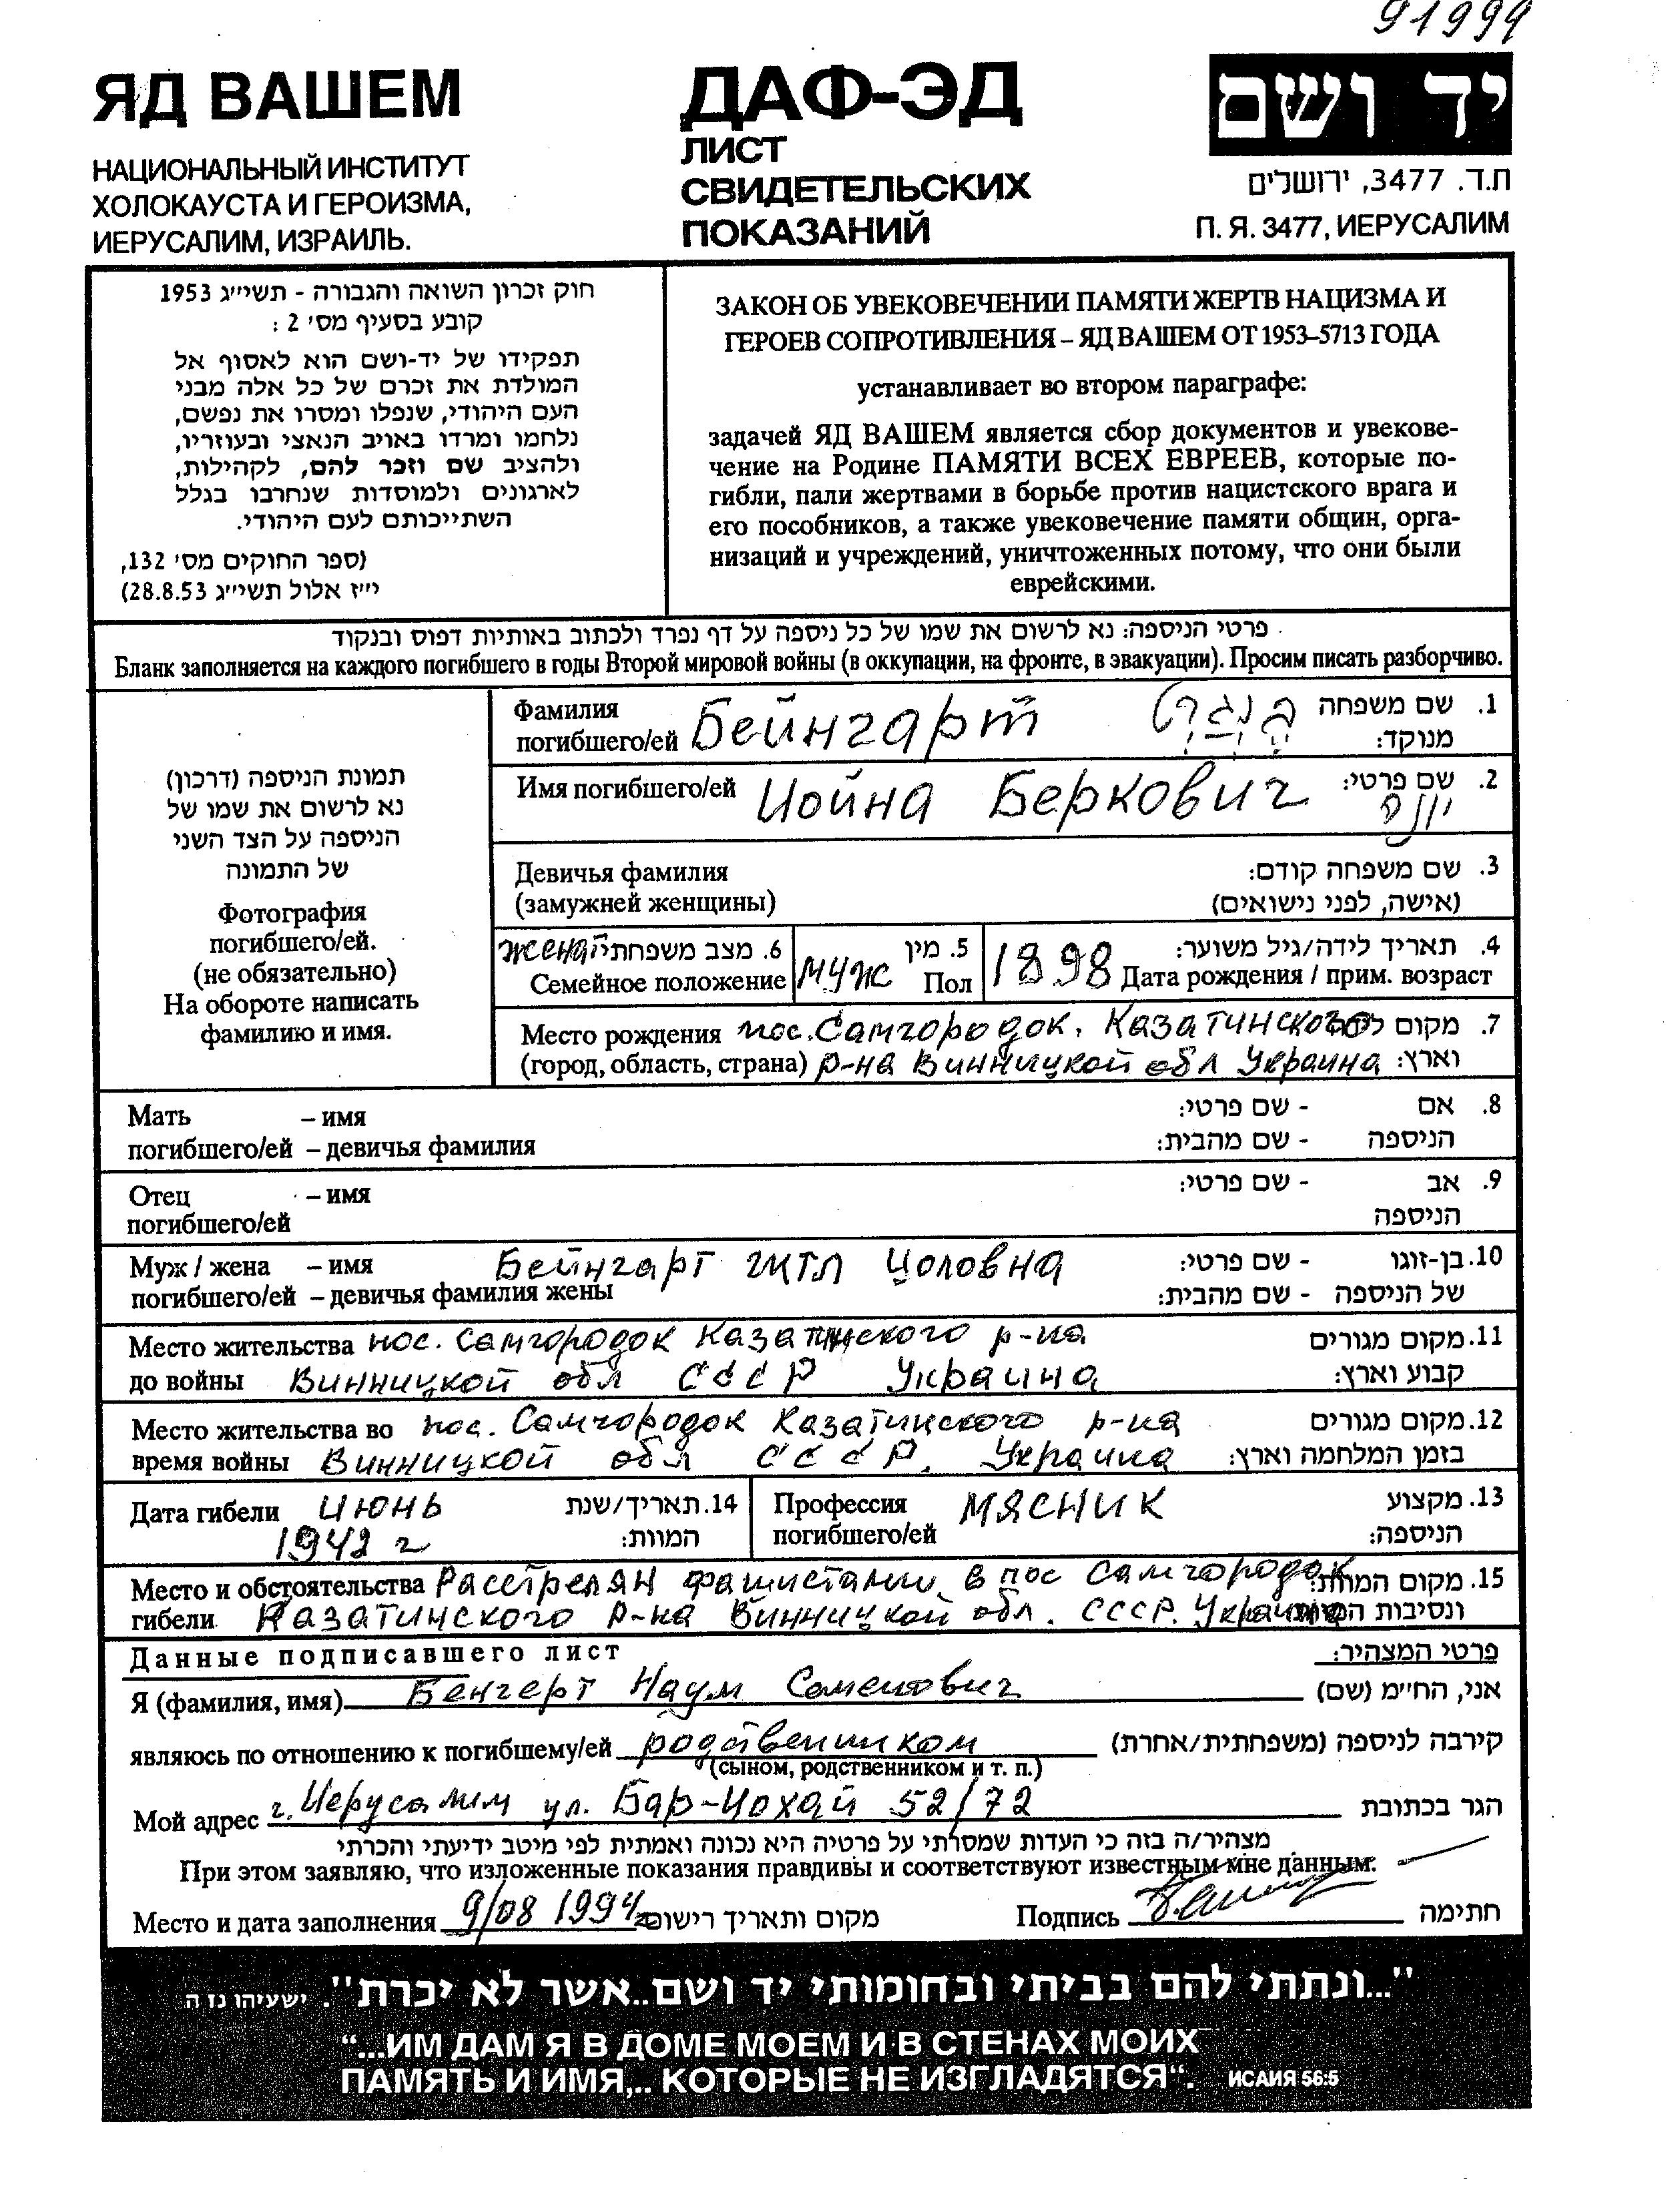 91999
ЯД ВАШЕМ
НАЦИОНАЛЬНЫЙ ИНСТИТУТ
ХОЛОКАУСТА И ГЕРОИЗМА,
ИЕРУСАЛИМ, ИЗРАИЛЬ.
ДАФ-ЭД
ЛИСТ
СВИДЕТЕЛЬСКИХ
ПОКАЗАНИЙ
יד ושם
ת.ד. 3477, ירושלים
П. Я. 3477, ИЕРУСАЛИМ
חוק זכרון השואה והגבורה - תשי״ג 1953
קובע בסעיף מס׳ 2 :
תפקידו של יד-ושם הוא לאסוף אל
המולדת את זכרם של כל אלה מבני
העם היהודי, שנפלו ומסרו את נפשם,
נלחמו ומרדו באויב הנאצי ובעוזריו,
ולהציב שם וזכר להם, לקהילות,
לארגונים ולמוסדות שנחרבו בגלל
השתייכותם לעם היהודי.
(ספר החוקים מס׳ 132,
י״ז אלול תשי״ג 28.8.53)
ЗАКОН ОБ УВЕКОВЕЧЕНИИ ПАМЯТИ ЖЕРТВ НАЦИЗМА И
ГЕРОЕВ СОПРОТИВЛЕНИЯ – ЯД ВАШЕМ ОТ 1953–5713 ГОДА
устанавливает во втором параграфе:
задачей ЯД ВАШЕМ является сбор документов и увекове-
чение на Родине ПАМЯТИ ВСЕХ ЕВРЕЕВ, которые по-
гибли, пали жертвами в борьбе против нацистского врага и
его пособников, а также увековечение памяти общин, орга-
низаций и учреждений, уничтоженных потому, что они были
еврейскими.
פרטי הניספה: נא לרשום את שמו של כל ניספה על דף נפרד ולכתוב באותיות דפוס ובנקוד
Бланк заполняется на каждого погибшего в годы Второй мировой войны (в оккупации, на фронте, в эвакуации). Просим писать разборчиво.
תמונת הניספה (דרכון)
נא לרשום את שמו של
הניספה על הצד השני
של התמונה
Фотография
погибшего/ей.
(не обязательно)
На обороте написать
фамилию и имя.
Фамилия 1. שם משפחה
погибшего/ей Бейнгарт מנוקד:
Имя погибшего/ей Иойна Беркович 2. שם פרטי:
Девичья фамилия 3. שם משפחה קודם:
(замужней женщины) (אישה, לפני נישואים)
6. מצב משפחתי 5. מין 4. תאריך לידה/גיל משוער:
Семейное положение муж Пол 1898 Дата рождения / прим. возраст
Место рождения пос. Самгородок. Казатинского 7. מקום
(город, область, страна) р-на Винницкой обл Украина וארץ:
Мать – имя 8. אם - שם פרטי:
погибшего/ей – девичья фамилия הניספה - שם מהבית:
Отец – имя 9. אב - שם פרטי:
погибшего/ей הניספה
Муж / жена – имя Бейнгарт Цоловна 10. בן-זוגו - שם פרטי:
погибшего/ей – девичья фамилия жены של הניספה - שם מהבית:
Место жительства пос. Самгородок Казатинского р-на 11. מקום מגורים
до войны Винницкой обл СССР Украина קבוע וארץ:
Место жительства во пос. Самгородок Казатинского р-на 12. מקום מגורים
время войны Винницкой обл СССР. Украина בזמן המלחמה וארץ:
Дата гибели Июнь 14. תאריך/שנת
1942 г המוות:
Профессия МЯСНИК 13. מקצוע
погибшего/ей הניספה:
Место и обстоятельства Расстрелян фашистами в пос Самгородок 15. מקום המוות:
гибели Казатинского р-на Винницкой обл. СССР. Украина ונסיבות
Данные подписавшего лист פרטי המצהיר:
Я (фамилия, имя) Бенгерт Наум Семенович אני, הח״מ (שם)
являюсь по отношению к погибшему/ей родственником קירבה לניספה (משפחתית/אחרת)
(сыном, родственником и т. п.)
Мой адрес г. Иерусалим ул. Бар-Йохай 52/72 הגר בכתובת
מצהיר/ה בזה כי העדות שמסרתי על פרטיה היא נכונה ואמתית לפי מיטב ידיעתי והכרתי
При этом заявляю, что изложенные показания правдивы и соответствуют известным мне данным.
Место и дата заполнения 9/08 1994г מקום ותאריך רישום Подпись חתימה
"...ונתתי להם בביתי ובחומותי יד ושם..אשר לא יכרת". ישעיהו נו ה
“...ИМ ДАМ Я В ДОМЕ МОЕМ И В СТЕНАХ МОИХ
ПАМЯТЬ И ИМЯ,.. КОТОРЫЕ НЕ ИЗГЛАДЯТСЯ“. ИСАИЯ 56:5